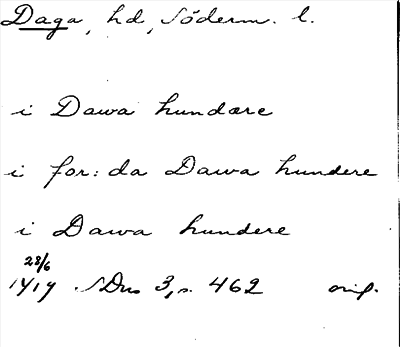 Daga, hd, Söderm. l.
i Dawa hundære
i for: da Dawa hundere
i Dawa hundere
28/6
1419 . SDns 3, s. 462 orig.